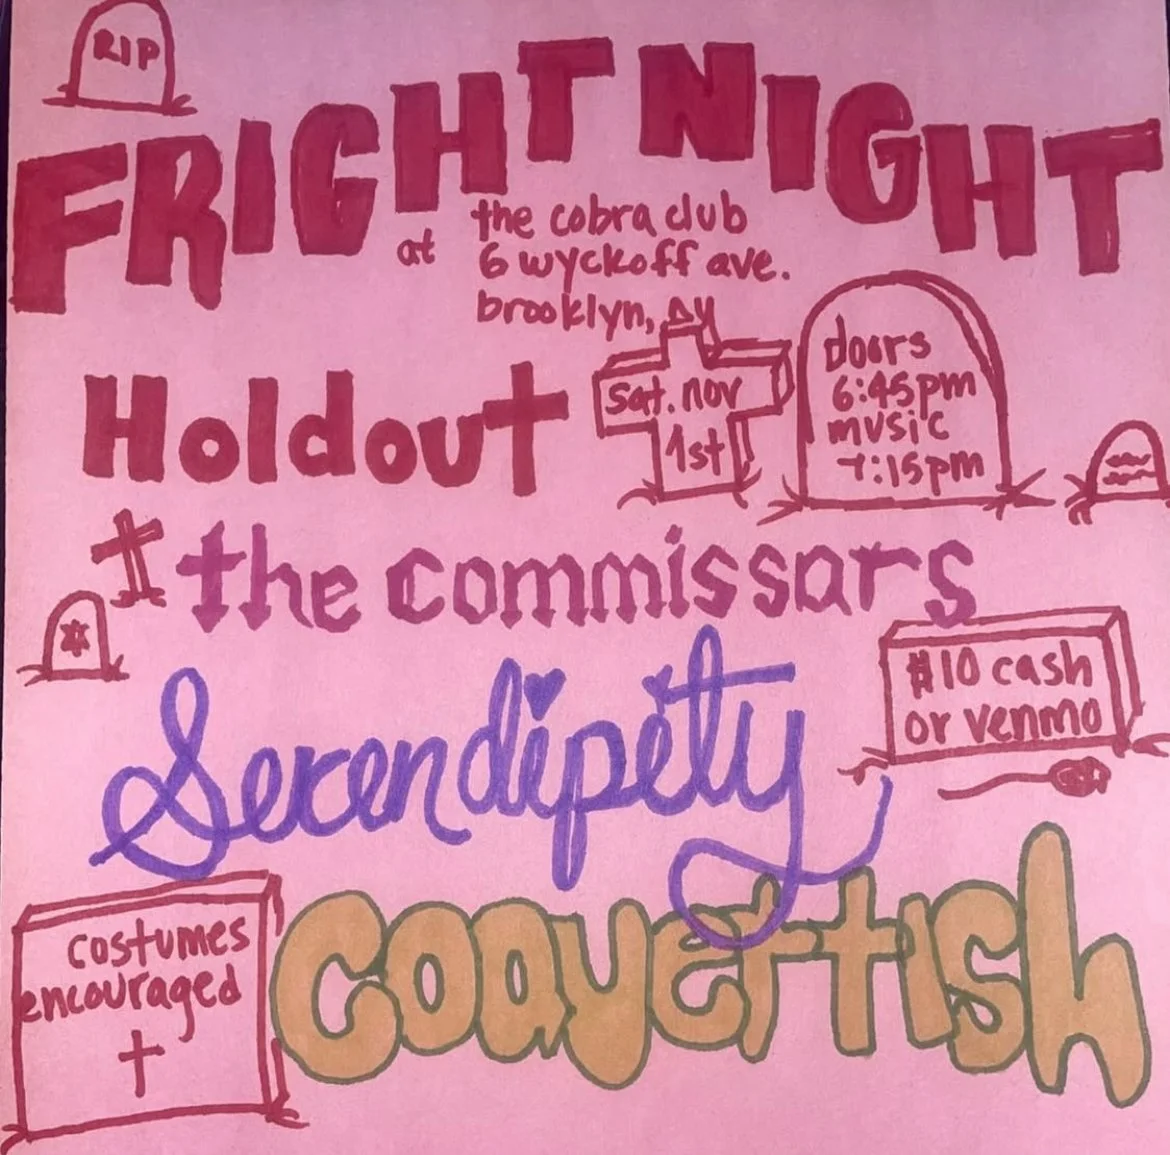 RIP
FRIGHT NIGHT
at the cobra club
6 wyckoff ave.
brooklyn, NY
Holdout
Sat. nov
1st
doors
6:45pm
music
7:15pm
the commissars
Serendipity
$10 cash
or venmo
costumes
encouraged
COQUETTISH